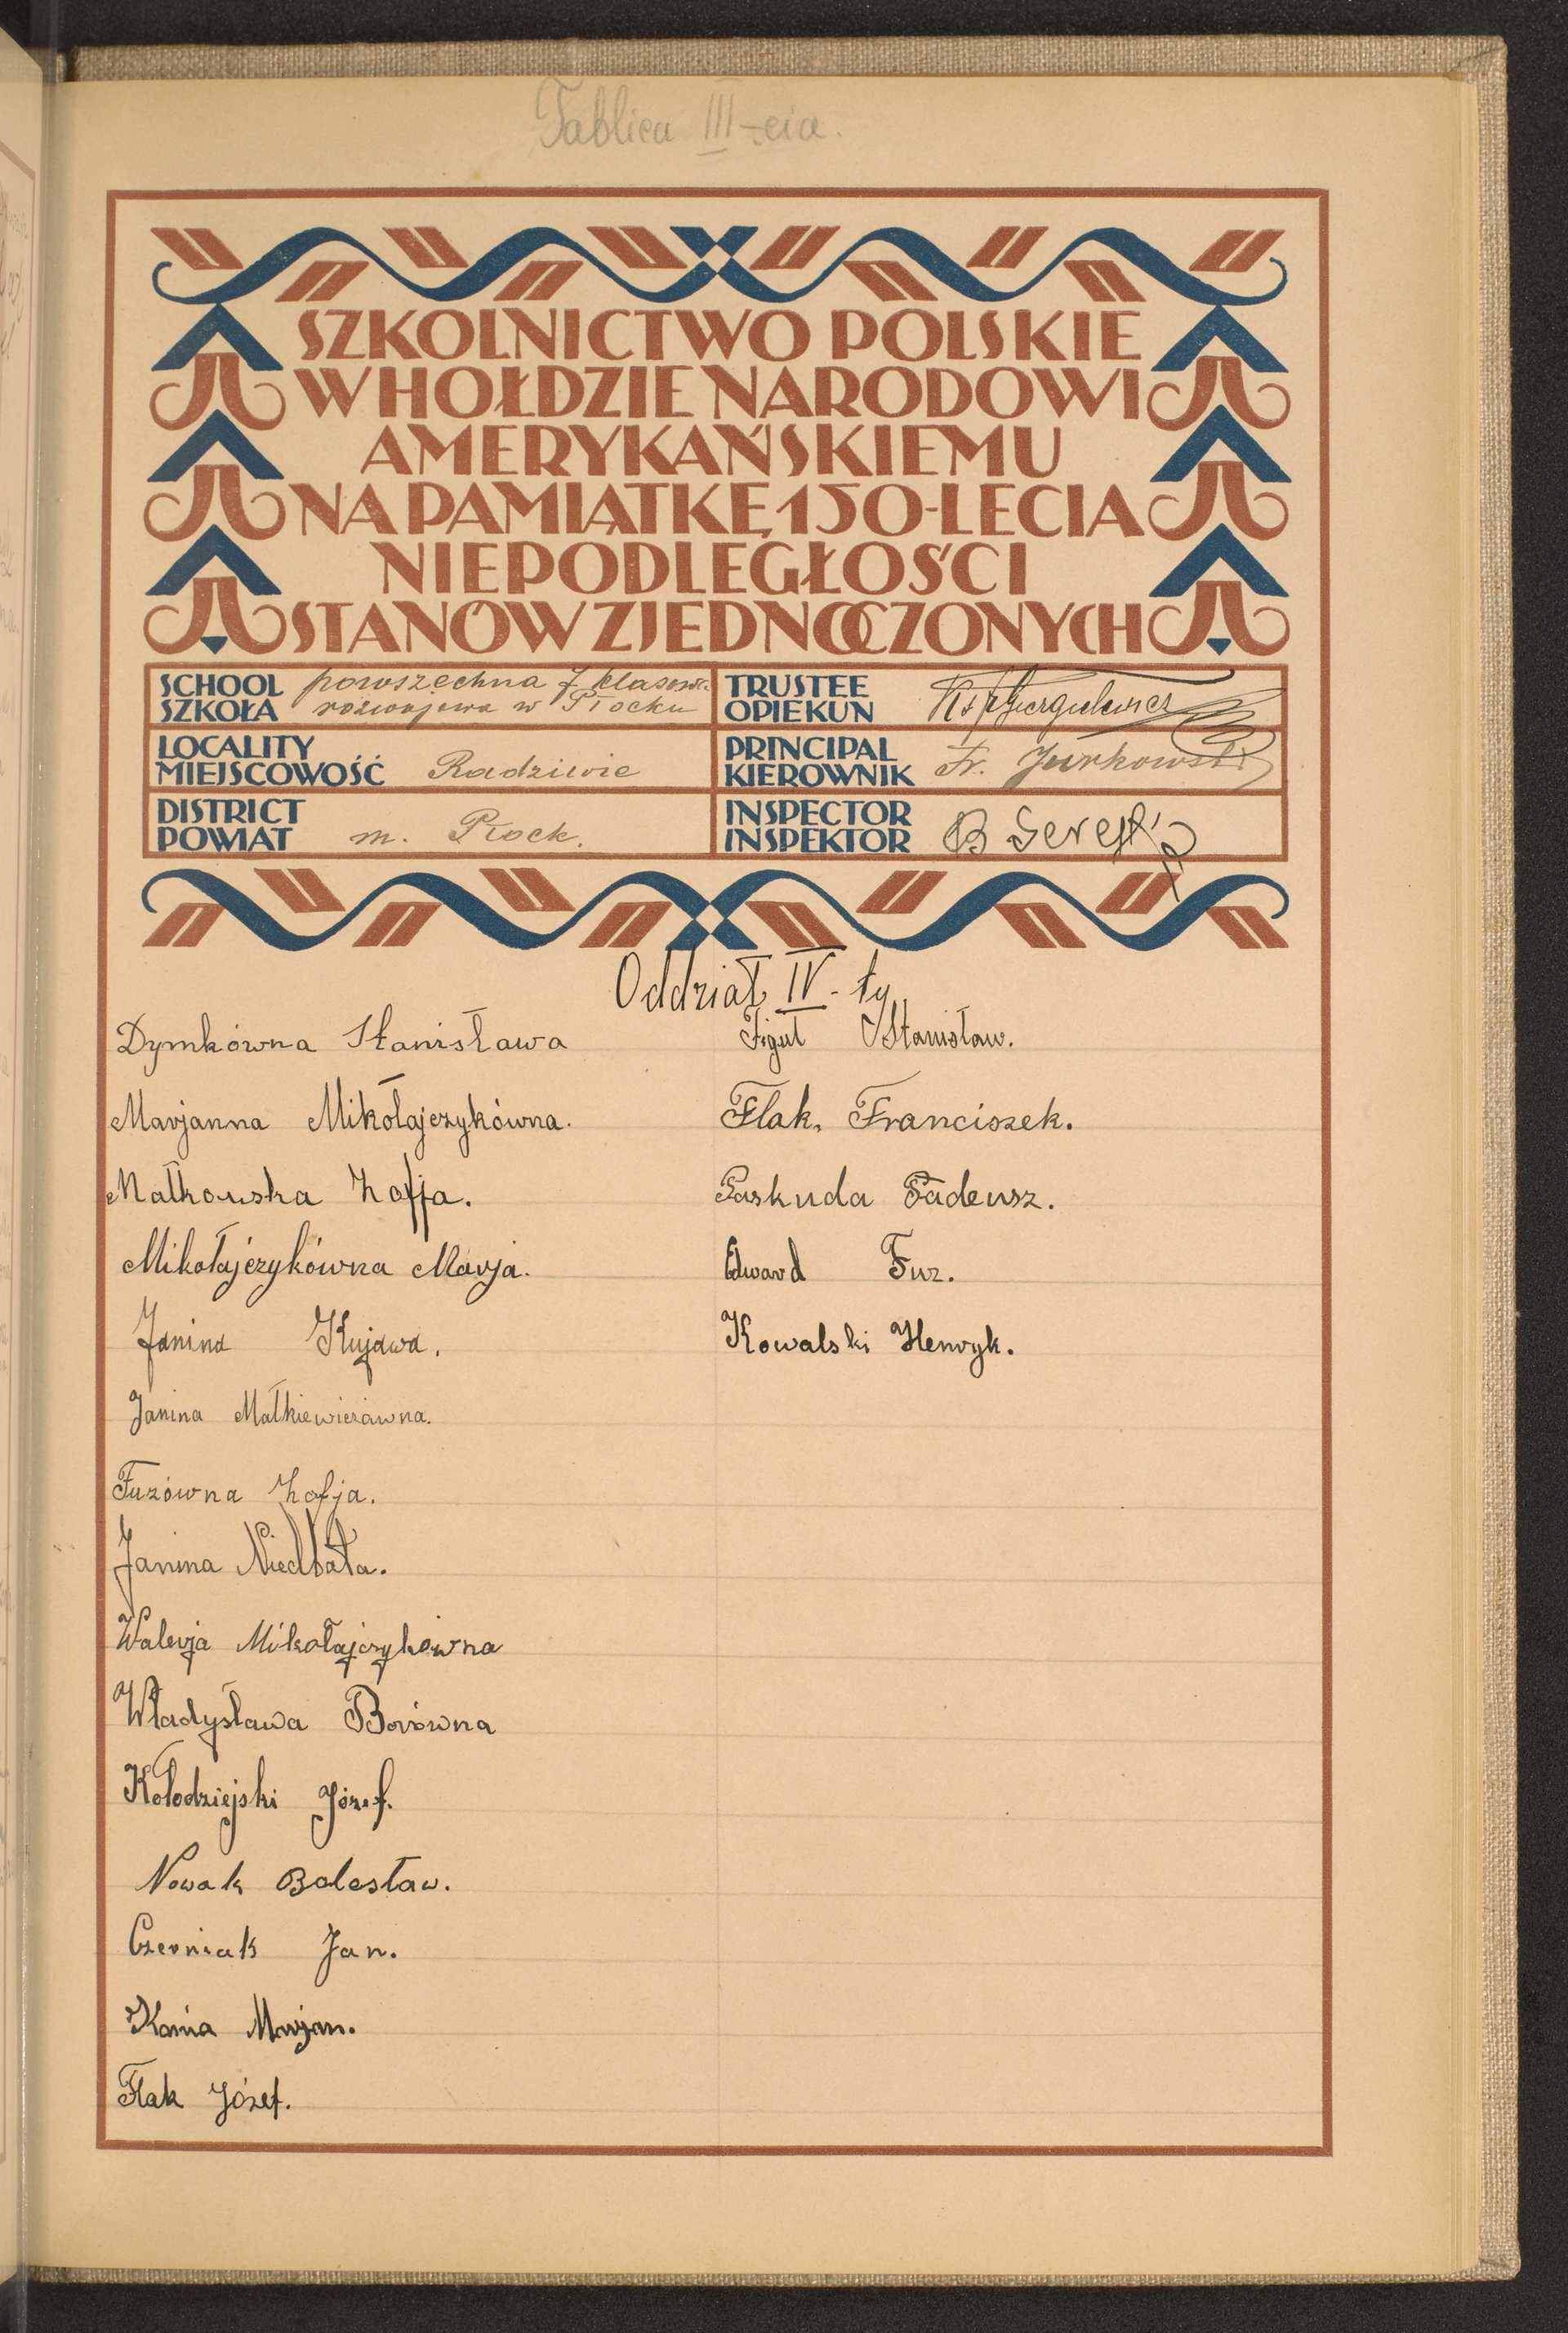 Tablica III-cia.
SZKOLNICTWO POLSKIE
W HOŁDZIE NARODOWI
AMERYKAŃSKIEMU
NA PAMIĄTKĘ 150-LECIA
NIEPODLEGŁOŚCI
STANÓW ZJEDNOCZONYCH
SCHOOL powszechna 7 klasowa
SZKOŁA rozwojowa w Płocku
TRUSTEE
OPIEKUN
LOCALITY
MIEJSCOWOŚĆ Radziwie
PRINCIPAL
KIEROWNIK Fr. Jurkowski
DISTRICT
POWIAT m. Płock.
INSPECTOR
INSPEKTOR B
Oddział IV-ty
Dymkówna Stanisława
Marjanna Mikołajczykówna.
Małkowska Zofja.
Mikołajczykówna Marja.
Janina Kujawa.
Janina Małkiewiczówna.
Fuzówna Zofja.
Janina Niedbała.
Walerja Mikołajczykówna
Władysława Borówna
Kołodziejski Józef.
Nowak Bolesław.
Czerniak Jan.
Kania Marjan.
Flak Józef.
Figut Stanisław.
Flak, Franciszek.
Paskuda Tadeusz.
Edward Fuz.
Kowalski Henryk.